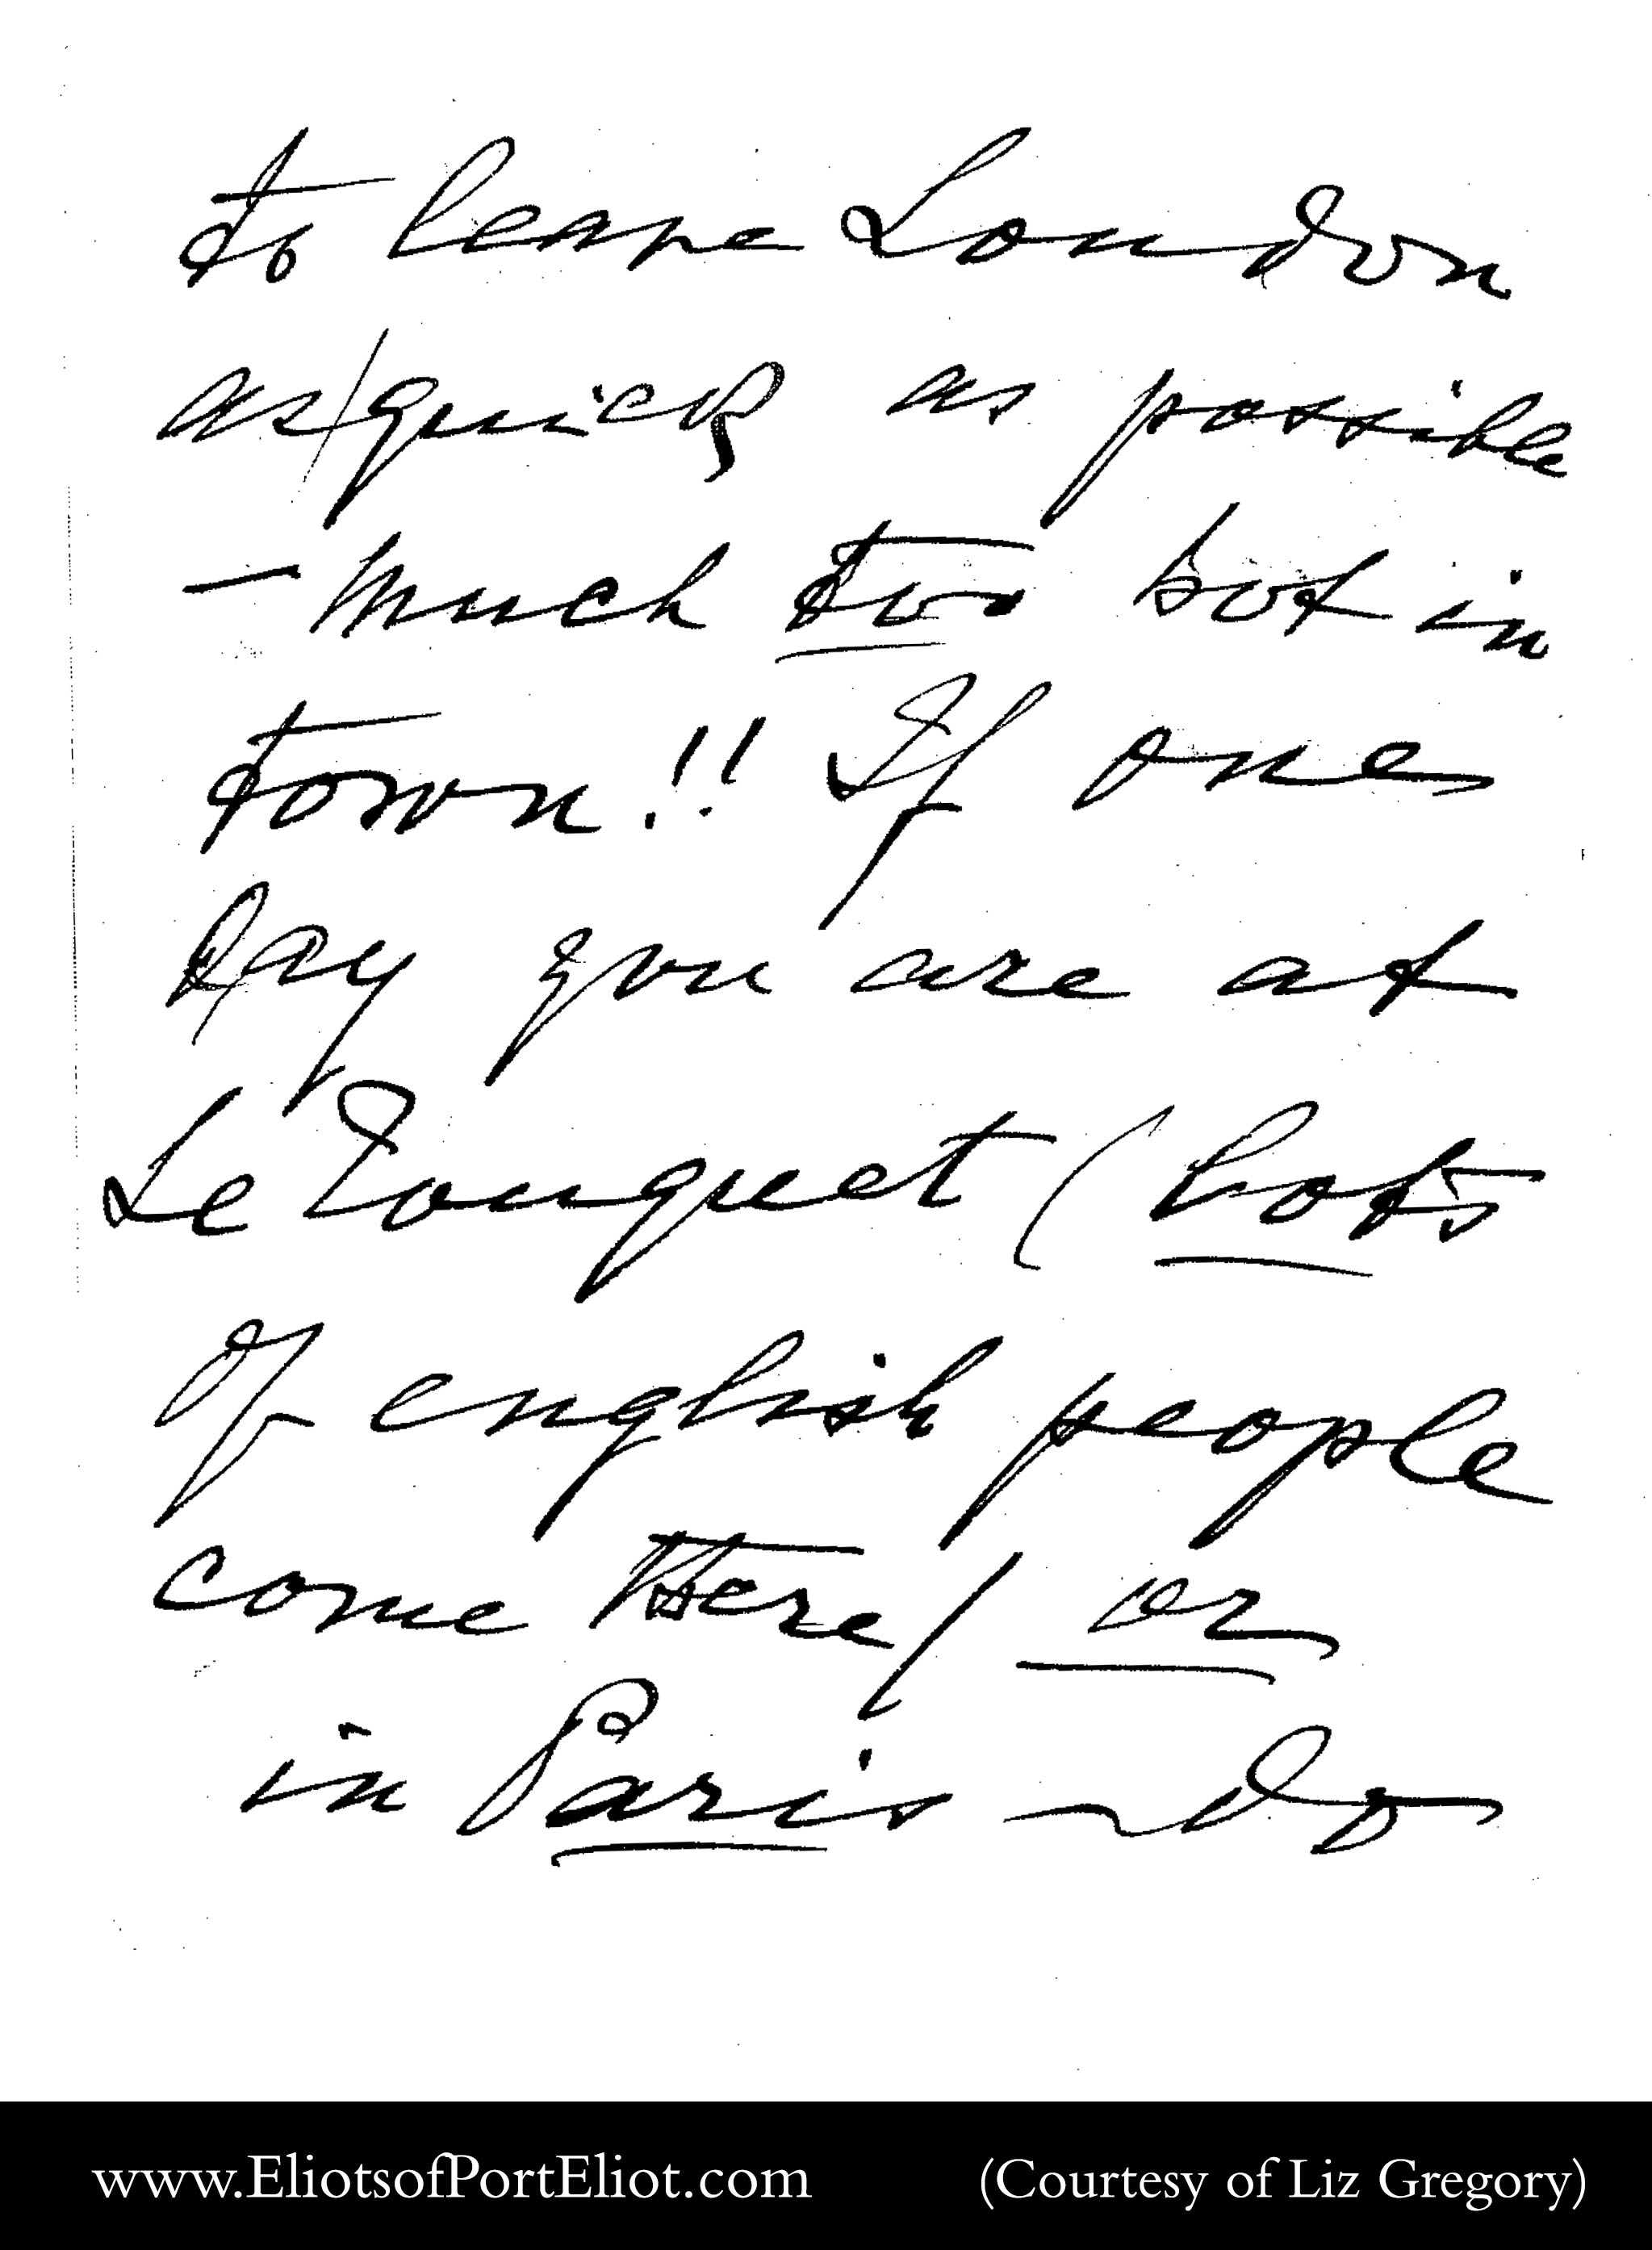 to leave London
as/quick as possible
- much too hot in
town!! If one
day you are at
Le Touquet (lots
of english people
come Here/ or
in Paris - do
www.EliotsofPortEliot.com (Courtesy of Liz Gregory)